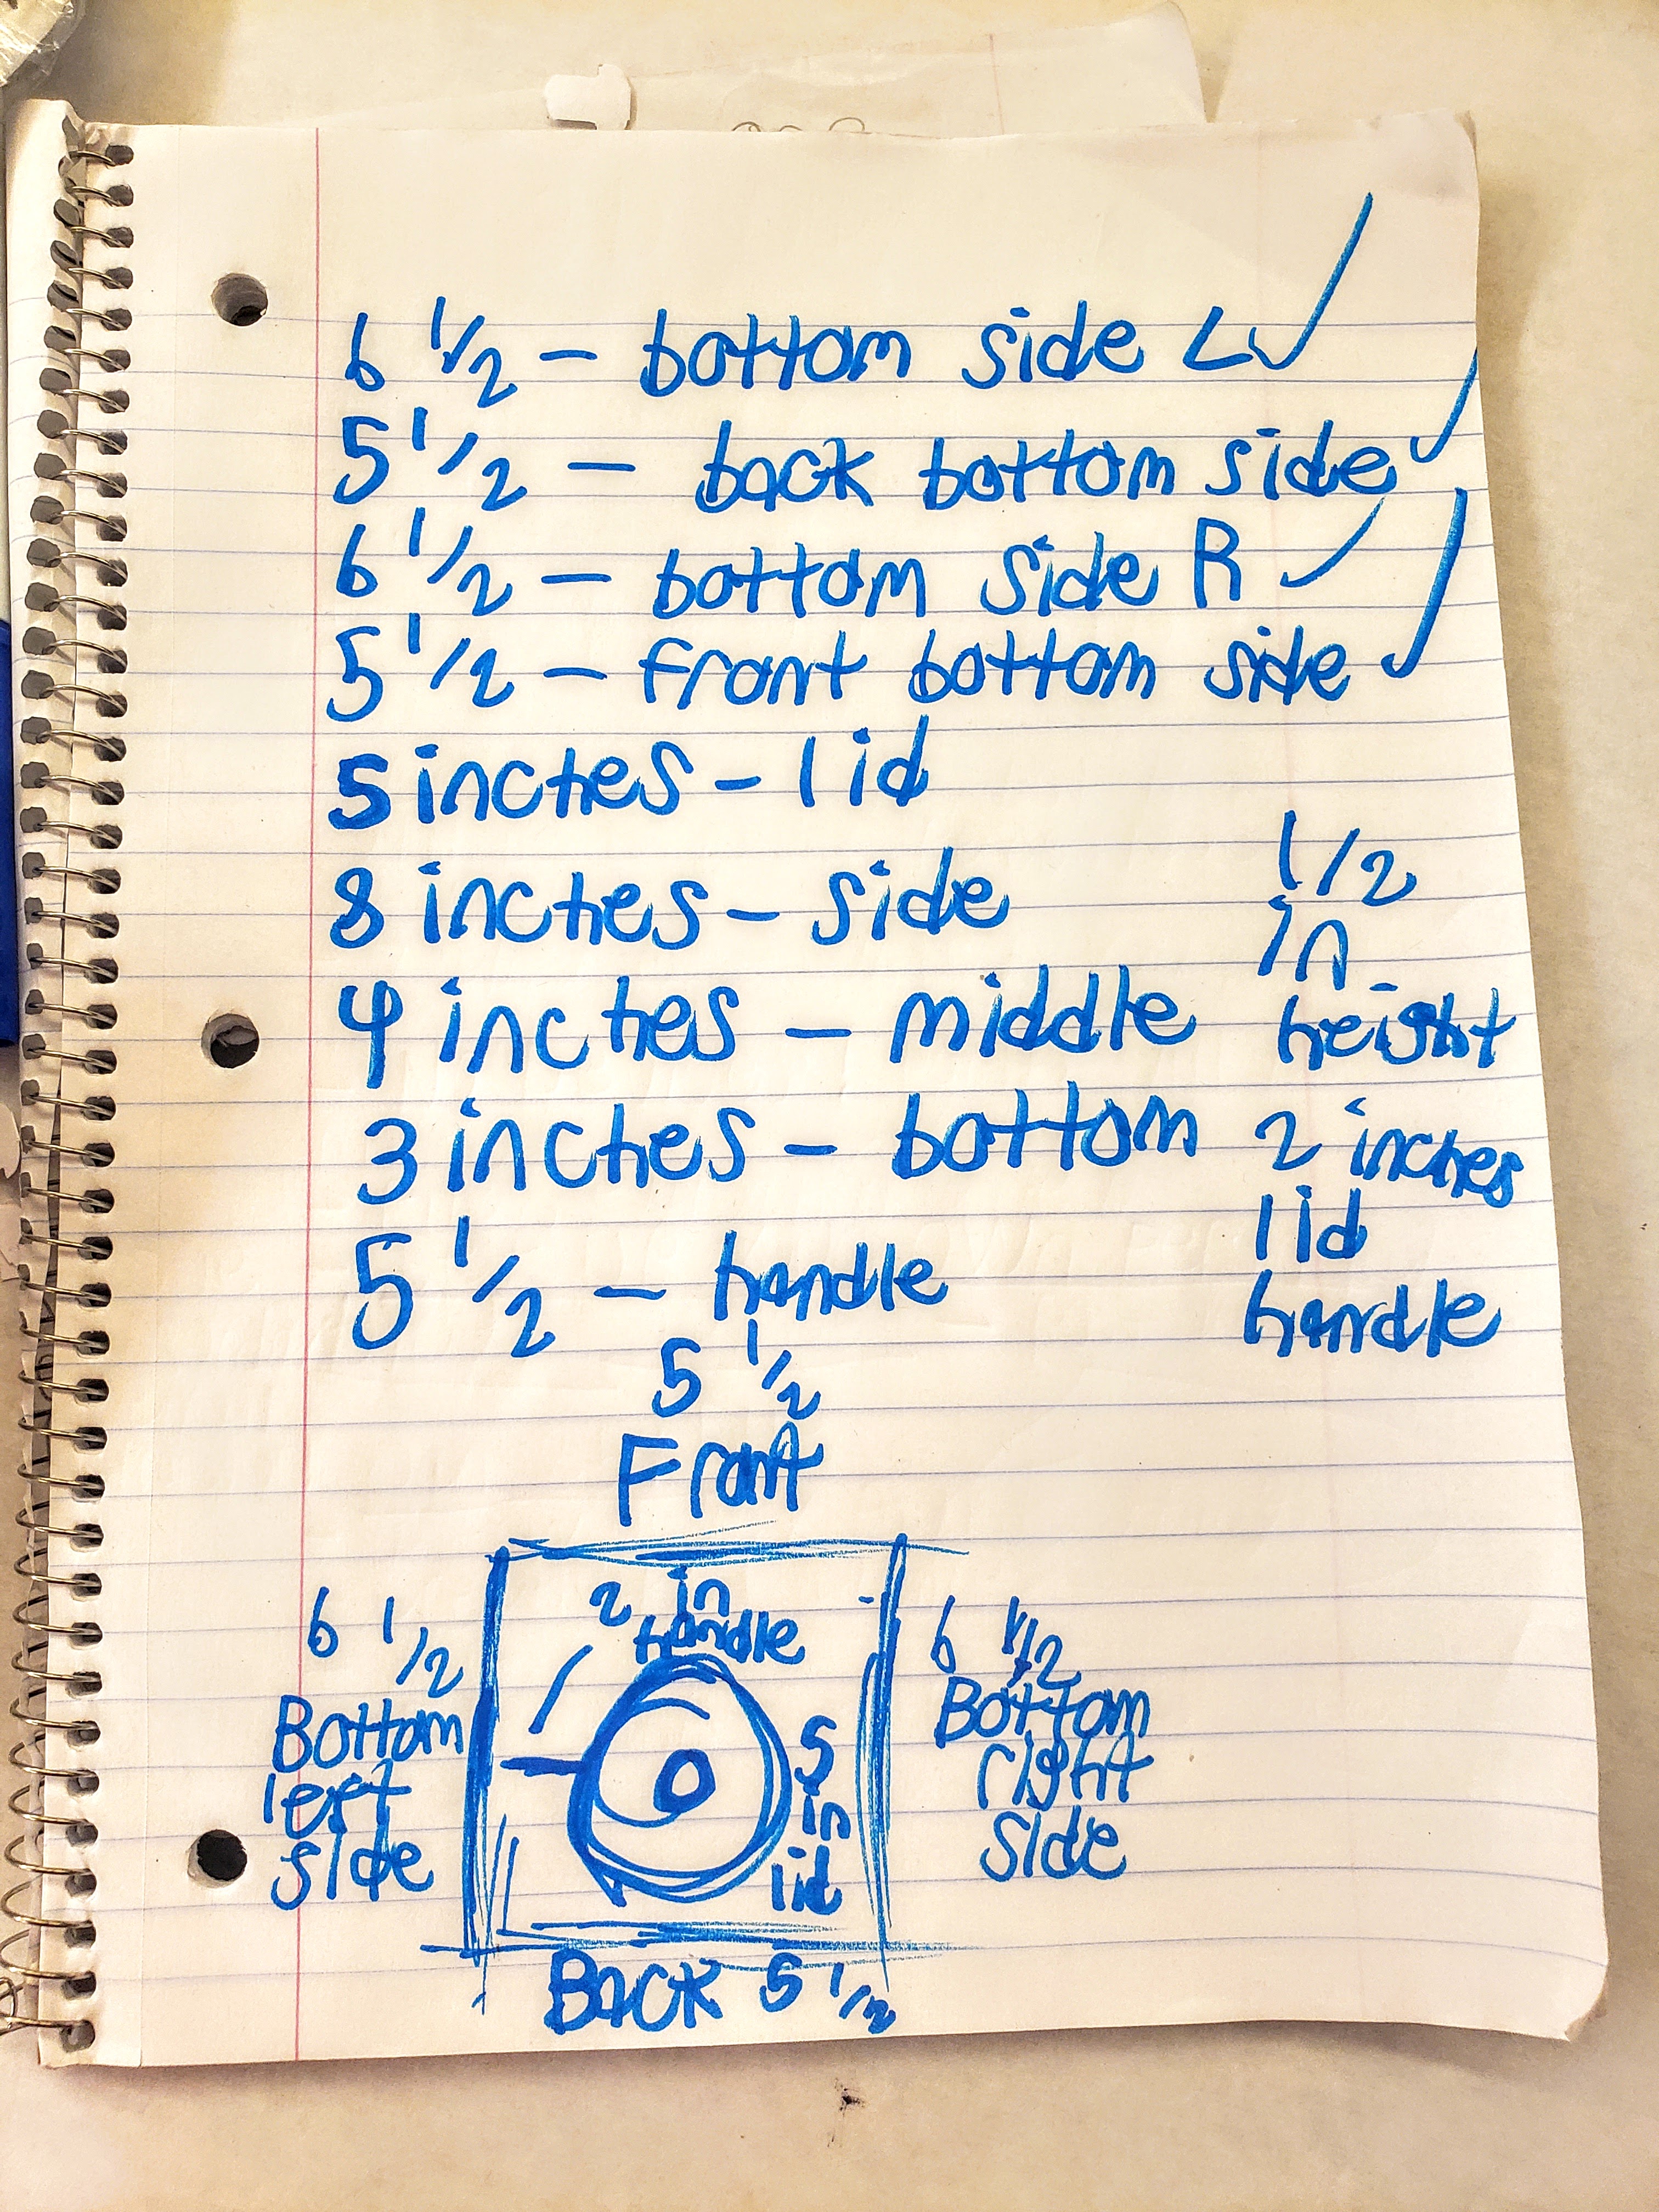 6 1/2 - bottom side L
5 1/2 - back bottom side
6 1/2 - bottom side R
5 1/2 - front bottom side
5 inches - lid
8 inches - side
4 inches - middle
3 inches - bottom
5 1/2 - handle
1/2
in
height
2 inches
lid
handle
5 1/2
Front
6 1/2
Bottom
left
side
2 in
handle
5
in
lid
6 1/2
Bottom
right
side
Back 5 1/2